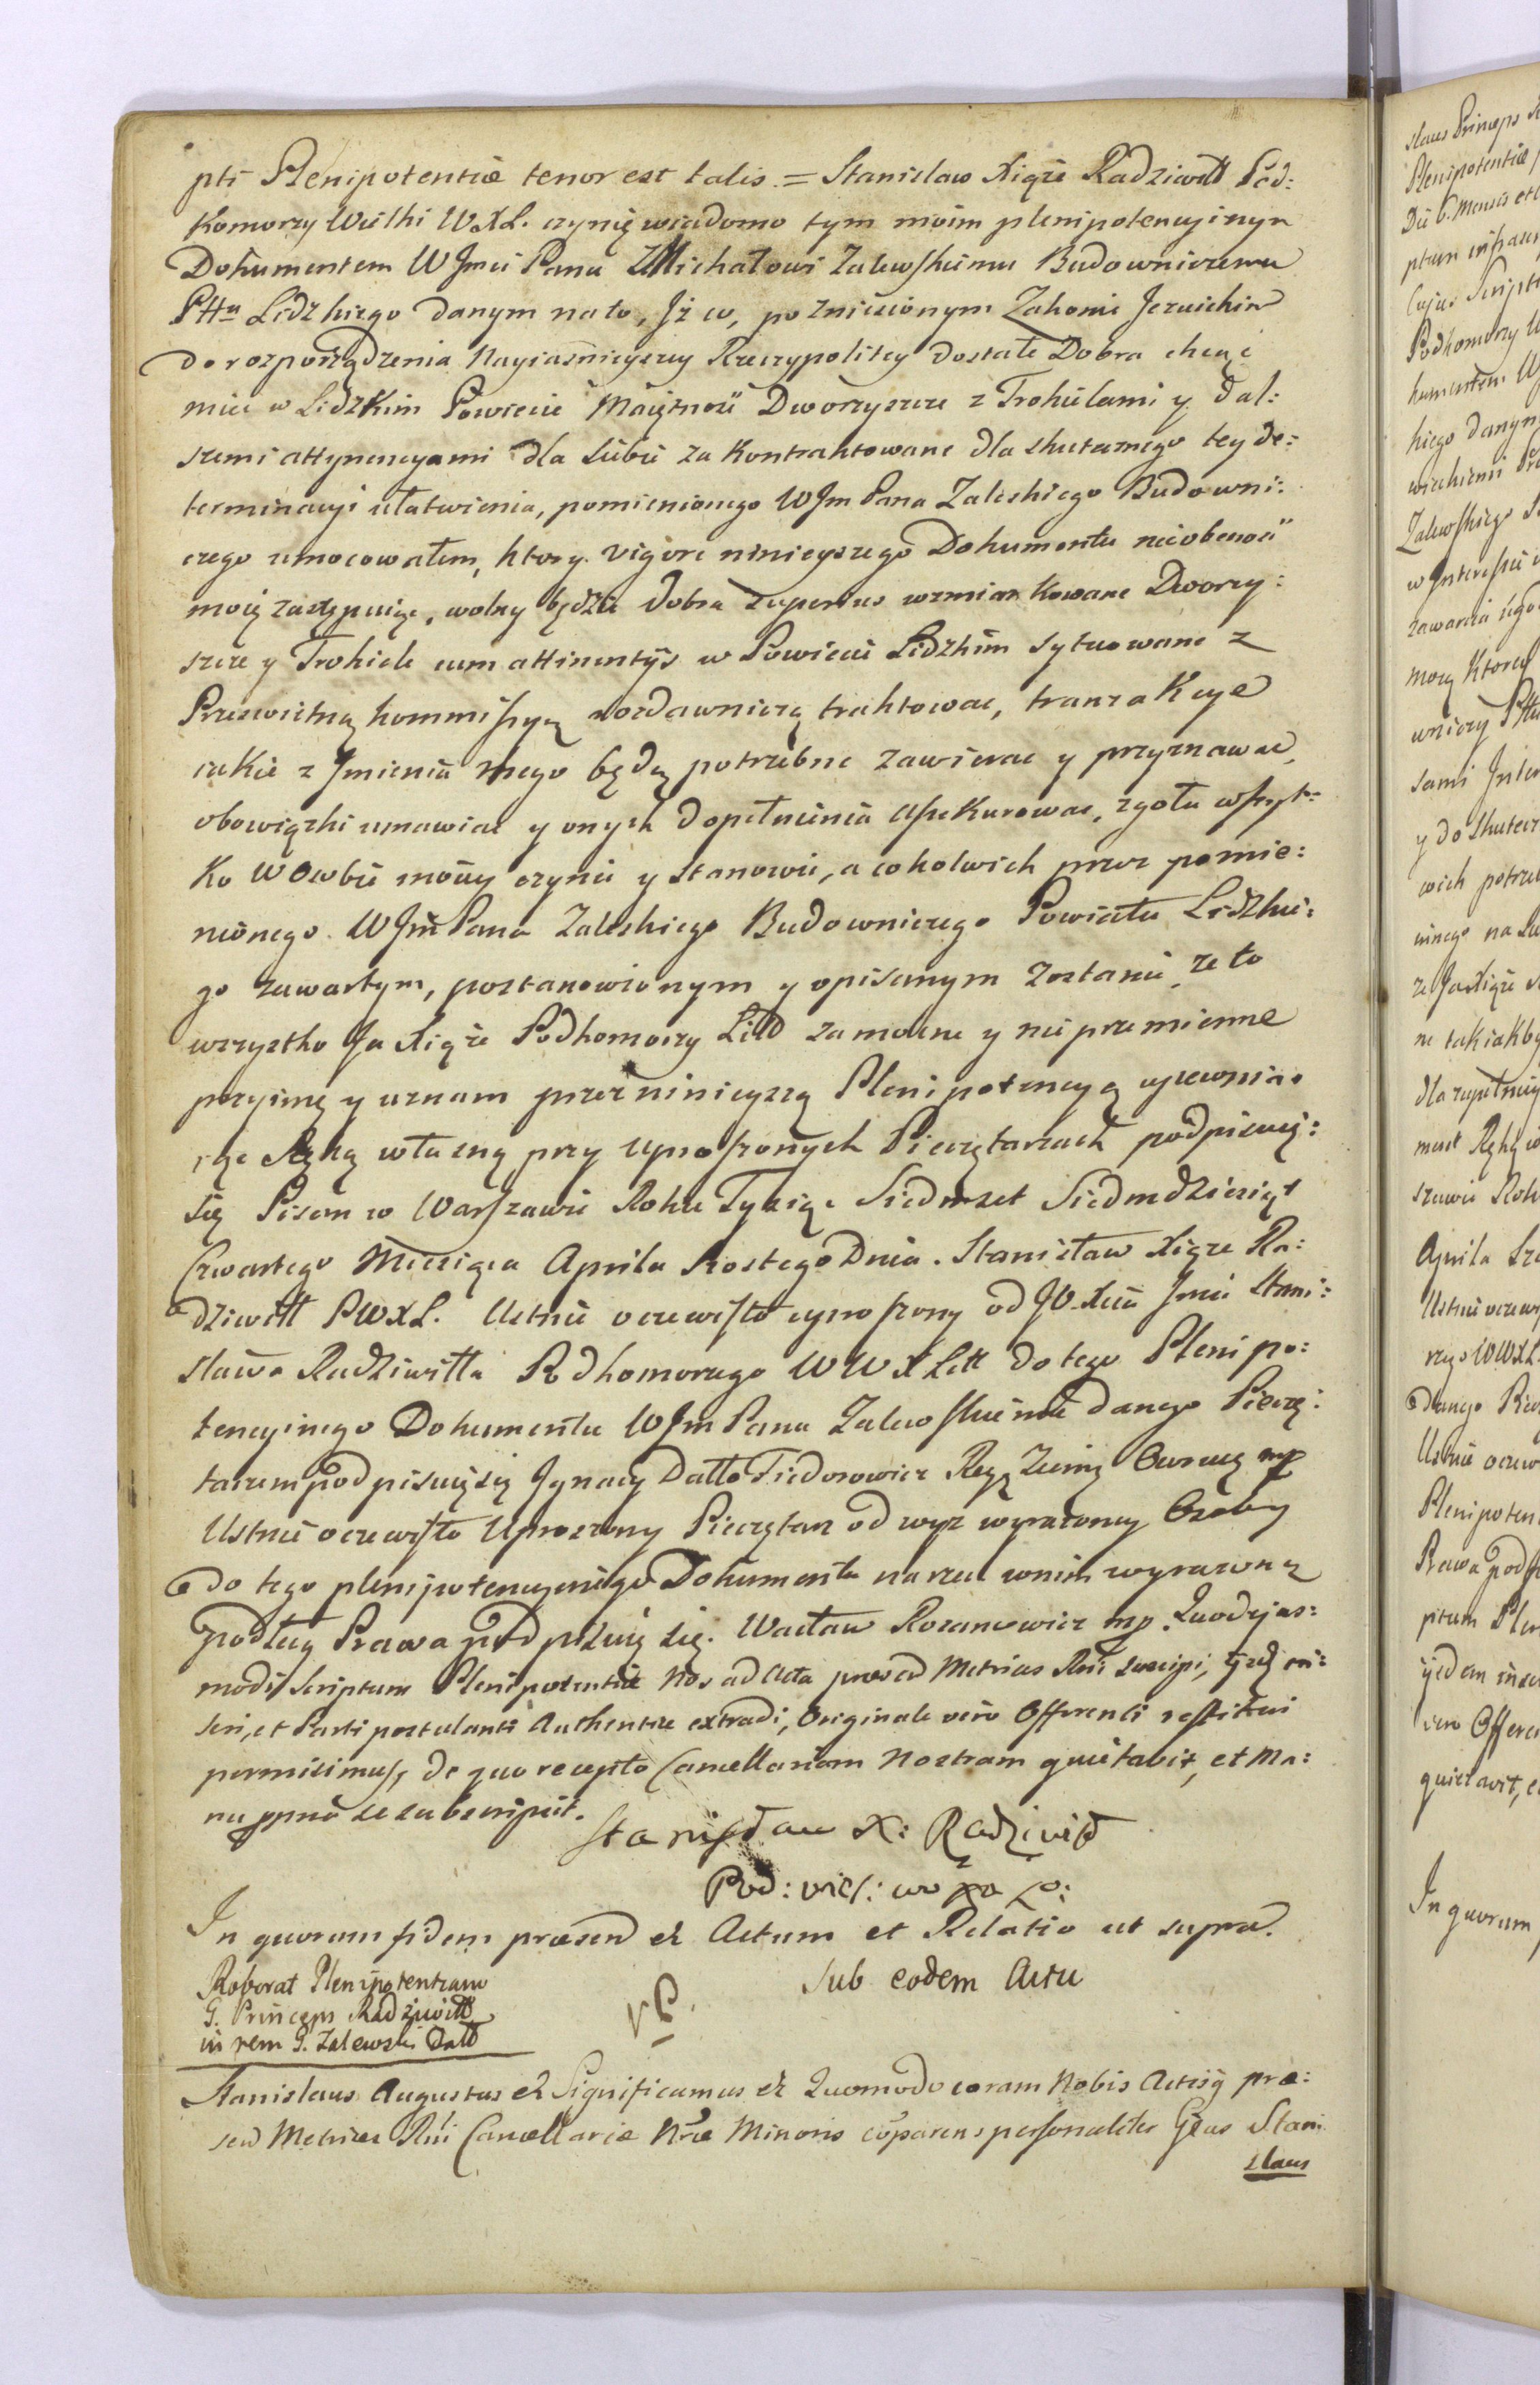 pti Plenipotentiæ tenor est talis = Stanislaw Xiąże Radziwiłł Pod:
Komorzy Wielki W.X.L. czynię wiadomo tym moim plenipotencyinym
Dokumentem WJmci Panu Michałowi Zalewskiemu Budowniczemu
Pttu Lidzkiego danym na to, Jż co, po zniesionym Zakonie Jezuickim
do rozporządzenia Nayiaśnieyszey Rzeczypolitey dostałe Dobra chcąc
miec w Lidzkim Powiecie Maiętność Dworzyszcze z Trokielami y dal:
szemi attynencyami dla siebie zakontraktowane dla skutecznego tey de:
terminacyi ułatwienia, pomienionego WJm Pana Zaleskiego Budowni:
czego umocowałem, ktory vigore ninieyszego Dokumentu nieobecność
moię zastępuiąc, wolny będzie dobra superius wzmiankowane Dworzy:
szcze y Trokiele cum attinentijs w Powiecie Lidzkim sytuowane z
Przeswietną kommissyą rozdawniczą traktowac, tranzakcye
iakie z Jmienia mego będą potrzebne zawierac y przyznawac,
obowiązki umawiac y onych dopełnienia assekurowac, zgoła wszyt:
ko w Osobie moiey czynic y stanowic, a cokolwiek przez pomie:
nionego WJm Pana Zaleskiego Budowniczego Powiatu Lidzkie:
go zawartym, postanowionym y opisanym zostanie, że to
wszystko Ja Xiąże Podkomorzy Litt za mocne y nieprzemienne
przyimę y uznam przez ninieyszą Plenipotencyą upewnia:
iąc Ręką własną przy uproszonych Pieczętarzach podpisuię:
się Pisan w Warszawie Roku Tysiąc Siedmset Siedmdziesiąt
Czwartego Miesiąca Aprila Szostego Dnia. Stanisław Xiąże Ra:
dziwiłł PWXL. Ustnie oczewisto uproszony od JO. Xcia Jmci Stani:
sława Radziwiłła Podkomorzego WWXLitt do tego Plenipo:
tencyinego Dokumentu WJm Panu Zalewskiemu danego Pieczę:
tarzem podpisuię się Jgnacy Datto Fiedorowicz Ziemi mp
Ustnie oczewisto Uproszony Pieczętarz od wyz wyrazoney Osoby
do tego plenipotencyinego Dokumentu na rzecz w nim wyrazoną
podług Prawa podpisuię się. Wacław Rozanowicz mp. Quod ejus:
modi Scriptum Plenipotentiæ Nos ad Acta præsend Metrices Rni suscipi, ijsdq ini:
seri, et Parti postulanti Authentice extradi, Originale vero Offerenti restitui
permisimus, de quo recepto Cancellariam Nostram quietavit, et Ma:
nu ppria se subscripsit.
Stanisław X: Radziwiłł
Pod: wiel: w xa Lo:
In quorum fidem præsend et Actum et Relatio ut supra.
Roborat Plenipotentiam
G. Princeps Radziwiłł
in rem G. Zalewski Datd
Sub eodem Actu
Stanislaus Augustus et Significamus et Quomodo coram Nobis Actisq præ:
send Metrices Rni Cancellariæ Nræ Minoris cōparens personaliter Gsus Stani
slaus